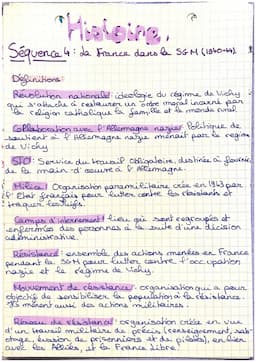 Histoire.
Séquence 4 : La France dans la SGM (1940-44).
Définitions :
Révolution nationale : idéologie du régime de Vichy
qui s'attache à restaurer un ordre moral incarné par
la religion catholique la famille et le monde rural
Collaboration avec l'Allemagne nazie : Politique de
soutien à l'Allemagne nazie menait par le régime
de Vichy
STO : Service du travail obligatoire, destinée à fournir
de la main d'œuvre à l'Allemagne.
Milice : Organisation paramilitaire crée en 1943 par
l'Etat français pour lutter contre les résistants et
traquer les juifs.
Camps d'internement : lieu où sont regroupés et
enfermées des personnes à la suite d'une décision
administrative.
Résistance : ensemble des actions menées en France
pendant la SGM pour lutter contre l'occupation
nazie et le régime de Vichy.
Mouvement de résistance : organisation qui a pour
objectif de sensibiliser la population à la résistance.
Ils mènent aussi des actions militaires
Réseau de résistance : organisation créée en vue
d'un travail militaire de précis (renseignement, sabo-
tage, évasion de prisonniers et de pilotes), en lien
avec les Alliés, et la France Libre.